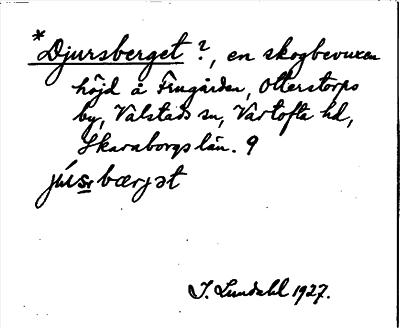 *Djursberget?, en skogbevuxen
höjd å Frugården, Otterstorps
by, Valstads sn, Vartofta hd,
Skaraborgs län. 9
bærjət
J. Lundahl 1927.